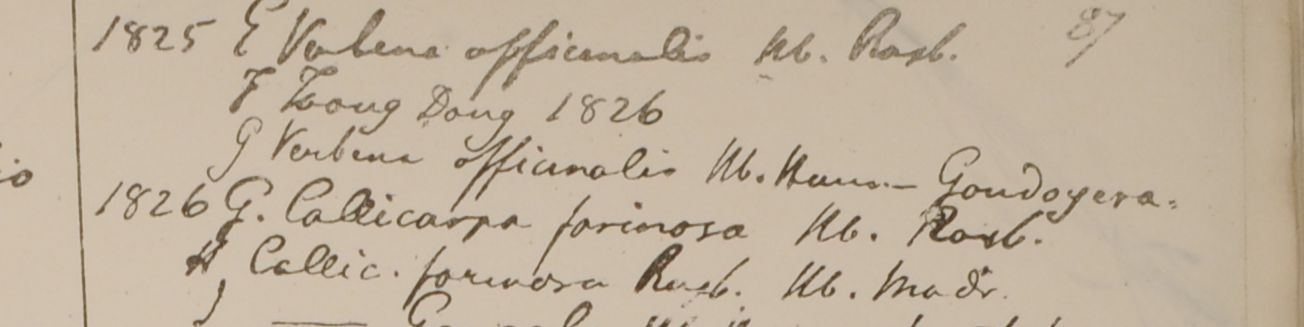 1825 E Verbena officinalis Hb. Roxb. 87
F Toong Dong 1826
G Verbena officinalis Hb. Ham. - Gondoyera.
io
1826 G. Callicarpa farinosa Hb. Roxb.
H Callic. farinosa Roxb. Hb. Madr.